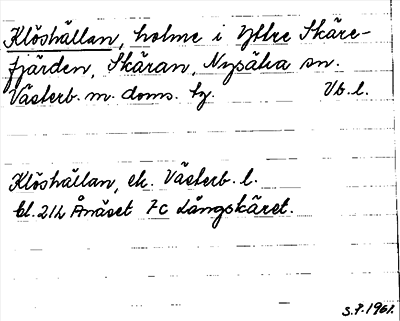 Klöshällan, holme i Yttre Skäre-
fjärden, Skäran, Nysätra sn.
Västerb. m. doms. tg. Vb. l.
Klöshällan, ek. Västerb. l.
bl. 21L Ånäset 7C Långskäret.
S.F. 1961.